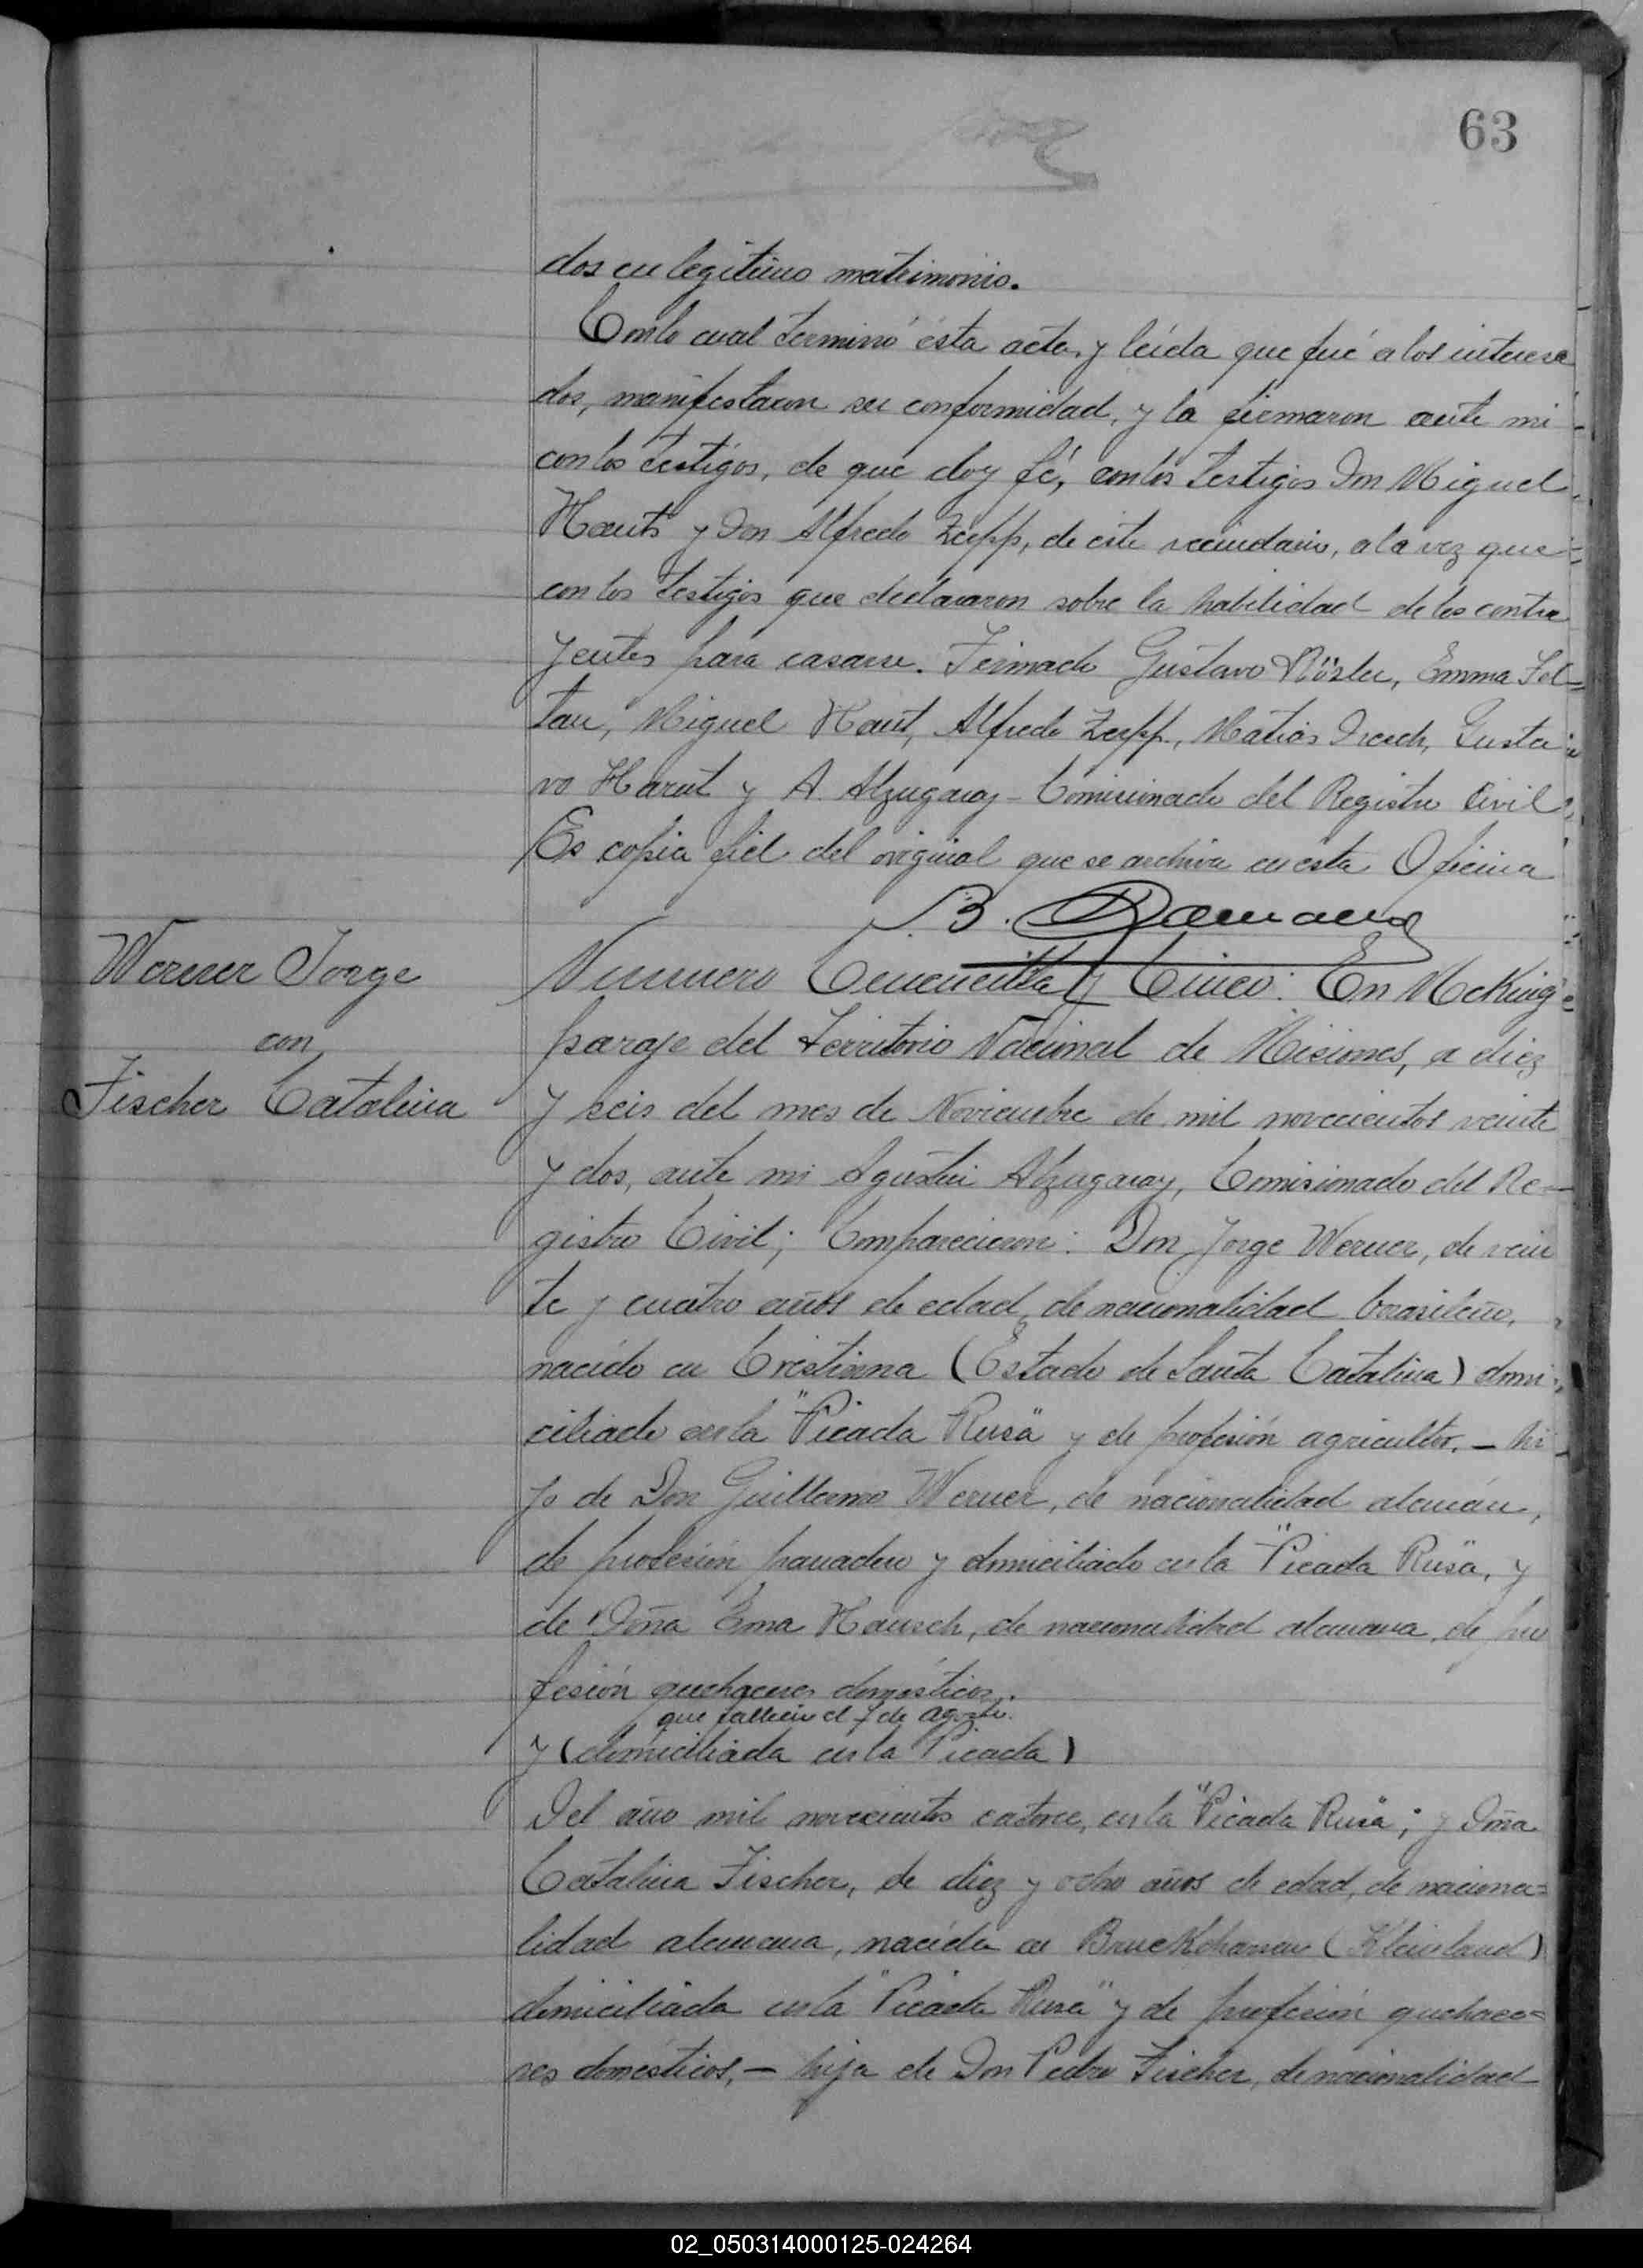 63
dos en legítimo matrimonio.
Con lo cual terminó ésta acta, y leída que fué a los interesa
dos, manifestaron su conformidad, y la firmaron ante mi
con los testigos, de que doy fé, con los testigos Don Miguel
Hauts y Don Alfredo Zepp, de este vecindario, a la vez que
con los testigos que declararon sobre la habilidad de los contra
yentes para casarse. Firmado Gustavo Rösler, Emma Fel-
tau, Miguel Haut, Alfredo Zepp, Matias Gusta-
vo Harut y A. Alzugaray - Comisionado del Registro Civil
Es copia fiel del original que se archiva en esta Oficina
B.
Werner Jorge
con
Fischer Catalina
Numero Cincuenta y Cinco: En McKing
paraje del Territorio Nacional de Misiones, a diez
y seis del mes de Noviembre de mil novecientos veinte
y dos, ante mi Agustin Alzugaray, Comisionado del Re-
gistro Civil; Comparecieron: Don Jorge Werner, de vein
te y cuatro años de edad, de nacionalidad brasileño,
nacido en Cristina (Estado de Santa Catalina) domi-
ciliado en la "Picada Rusa" y de profesión agricultor, - hi
jo de Don Guillermo Werner, de nacionalidad alemán,
de profesión panadero y domiciliado en la "Picada Rusa", y
de Doña Ema Hausch, de nacionalidad alemana, de pro
fesión quehaceres domésticos,
que falleció el 7 de agosto.
y (domiciliada en la Picada)
Del año mil novecientos catorce, en la "Picada Rusa"; y Doña
Catalina Fischer, de diez y ocho años de edad, de naciona=
lidad alemana, nacida en
domiciliada en la "Picada Rusa" y de profesión quehace=
res domésticos, - hija de Don Pedro Fischer, de nacionalidad
02_050314000125-024264